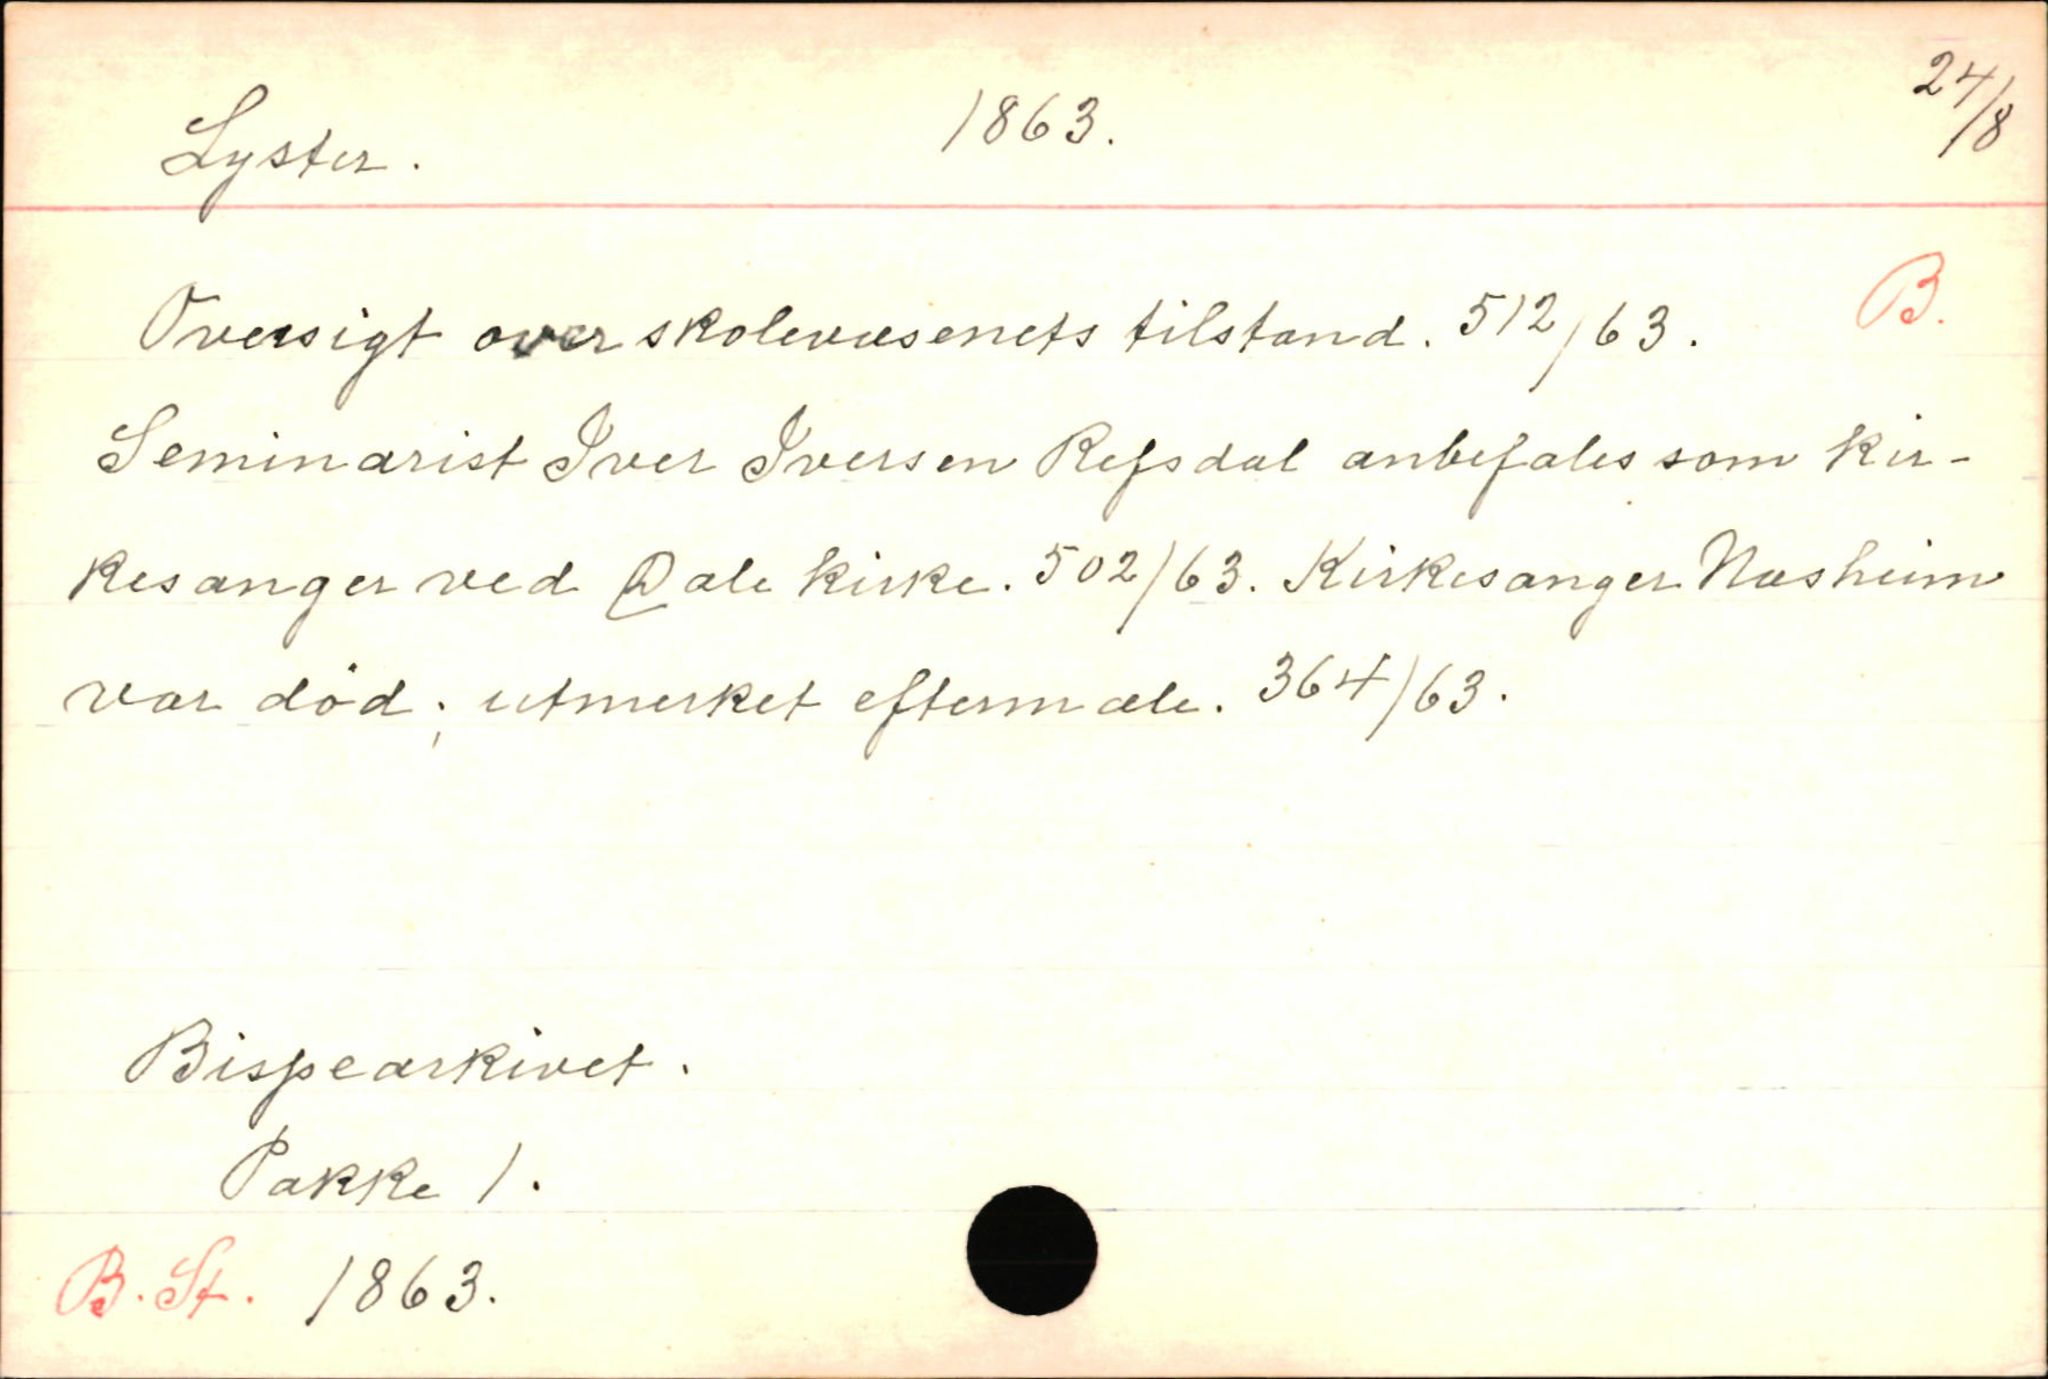 Lyster.
1863.
24/8
B.
Oversigt over skolevæsenets tilstand. 512/63.
Seminarist Iver Iversen Refsdal anbefales som kir-
kesanger ved Dale kirke. 502/63. Kirkesanger Næsheim
var død; utmerket eftermæle. 364/63.
Bispearkivet.
Pakke 1.
B. St. 1863.